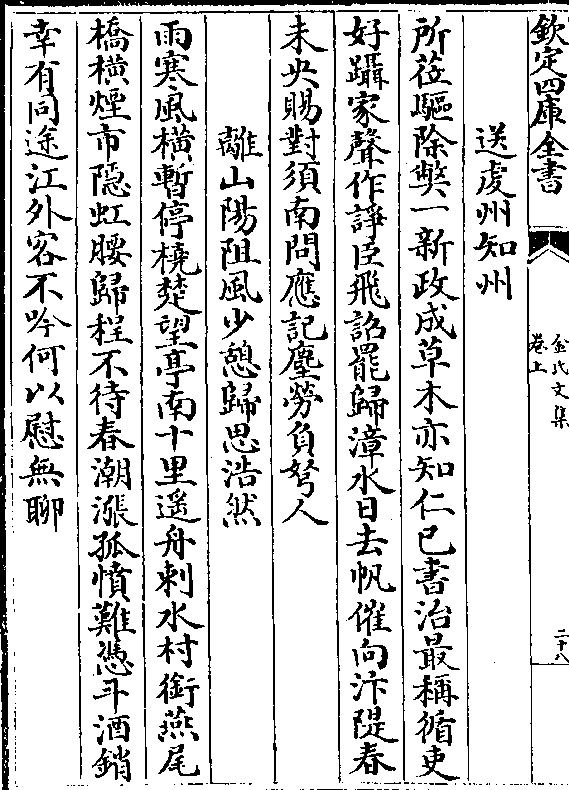 欽定四庫全書
金氏文集
卷上
二十八
送虔州知州
所莅驅除弊一新政成草木亦知仁已書治最稱循吏
好躡家聲作諍臣飛詔罷歸漳水日去帆催向汴隄春
未央賜對須南問應記塵勞負弩人
離山陽阻風少憩歸思浩然
雨寒風橫暫停橈楚望亭南十里遥舟刺水村銜燕尾
橋橫煙市隱虹腰歸程不待春潮漲孤憤難憑斗酒銷
幸有同途江外客不吟何以慰無聊